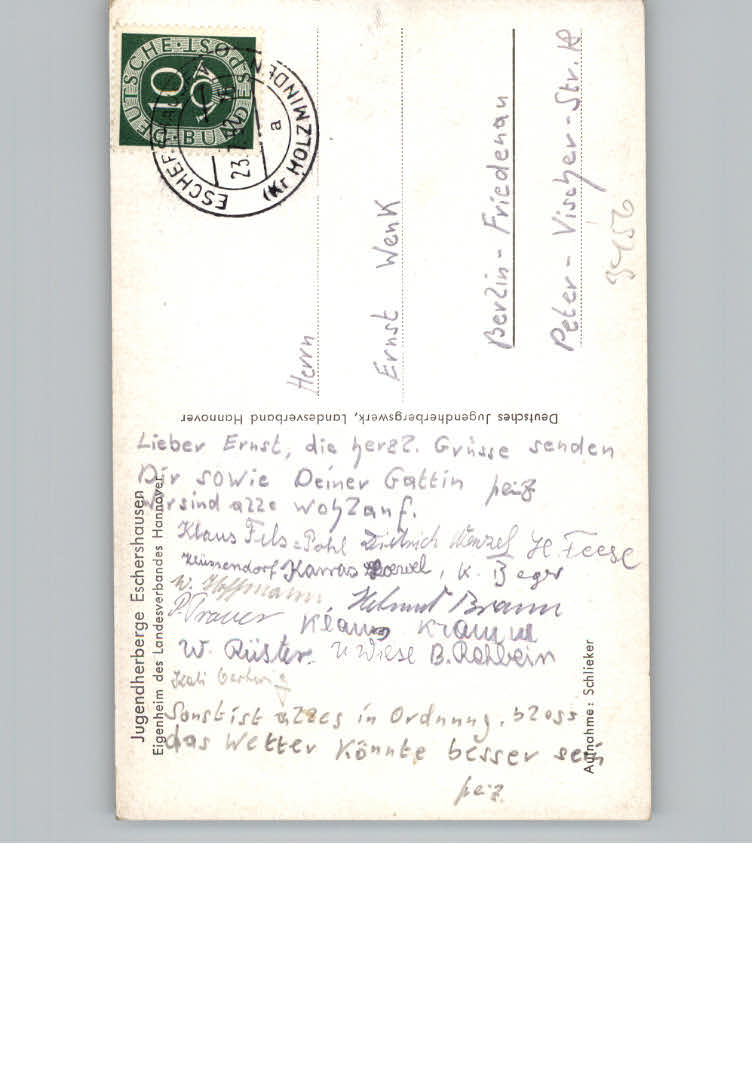 DEUTSCHE·BUNDESPOST
10
23.
a
(Kr HOLZMINDEN)
Herrn
Ernst Wenk
Berlin-Friedenau
Peter-Vischer-Str. 12
Deutsches Jugendherbergswerk, Landesverband Hannover
Jugendherberge Eschershausen
Eigenheim des Landesverbandes Hannover
Lieber Ernst, die herzl. Grüsse senden
Dir sowie Deiner Gattin
wir sind alle wohlauf.
Klaus Fels=Pohl Dietrich Wenzel H. Feese
Klüssendorf Karras K. Beger
W. Hoffmann Helmut Braun
P. Trauer Klaus
W. Rüster U Wiese B. Rehbein
Sonst ist alles in Ordnung. bloss
das Wetter könnte besser sein
Aufnahme: Schlieker